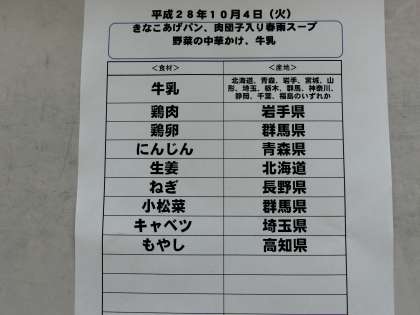 平成28年10月4日（火）
きなこあげパン、肉団子入り春雨スープ
野菜の中華かけ、牛乳
＜食材＞ ＜産地＞
牛乳 北海道、青森、岩手、宮城、山
形、埼玉、栃木、群馬、神奈川、
静岡、千葉、福島のいずれか
鶏肉 岩手県
鶏卵 群馬県
にんじん 青森県
生姜 北海道
ねぎ 長野県
小松菜 群馬県
キャベツ 埼玉県
もやし 高知県